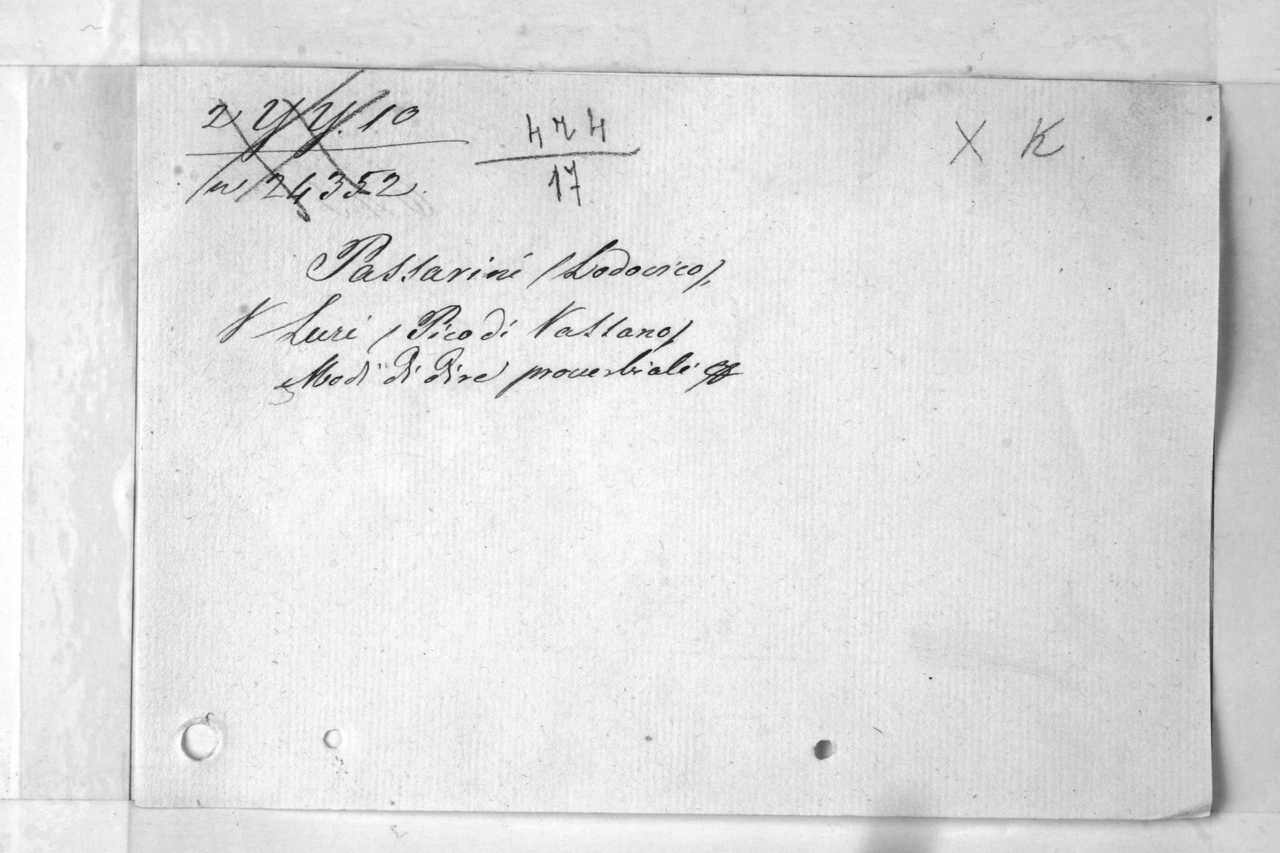 2 Y Y. 10
(n) 24352.
474
17
X K
Passarini (Lodovico),
V Luri (Pico di Vassano)
Modi di dire proverbiali